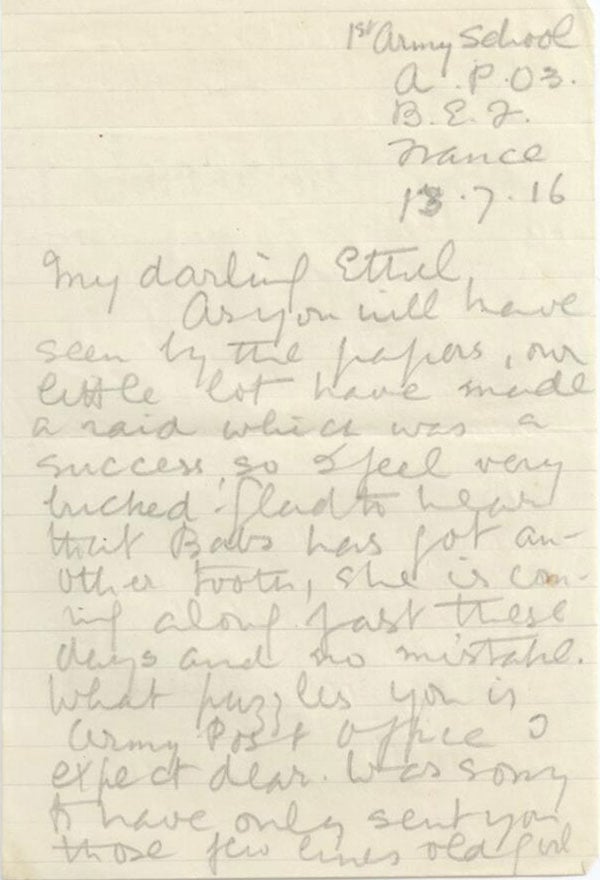 1st Army School
A.P.O 3.
B.E.F.
France
13.7.16
My darling Ethel,
As you will have
seen by the papers, our
little lot have made
a raid which was a
success, so I feel very
bucked. Glad to hear
that Babs has got an-
other tooth, she is com-
ing along fast these
days and no mistake.
What puzzles you is
Army Post Office I
expect dear. Was sorry
to have only sent you
those few lines old girl